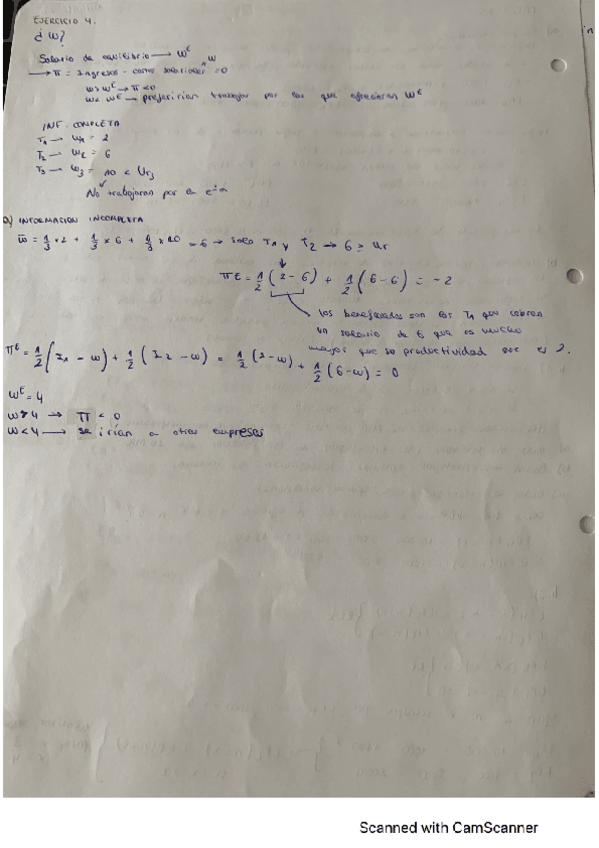 EJERCICIO 4.
¿ w?
Salario de equilibrio → wᴱ
→ π = Ingresos - costes salariales = 0
w
w > wᴱ → π < 0
w < wᴱ → preferirían trabajar por los que ofrecieran wᴱ
INF. COMPLETA
T₁ → w₁ = 2
T₂ → w₂ = 6
T₃ → w₃ = 10 < Ur₃
No trabajaran por
a) INFORMACION INCOMPLETA
w̄ = 1/3 × 2 + 1/3 × 6 + 1/3 × 10 = 6 → solo T₁ y T₂ → 6 ≥ Ur
πᴱ = 1/2 (2 - 6) + 1/2 (6 - 6) = -2
los beneficiados son los T₁ que cobran
un salario de 6 que es mucho
mayor que su productividad que es 2.
πᴱ = 1/2 (I₁ - w) + 1/2 (I₂ - w) = 1/2 (2 - w) + 1/2 (6 - w) = 0
wᴱ = 4
w > 4 → π < 0
w < 4 → se irían a otras empresas
Scanned with CamScanner